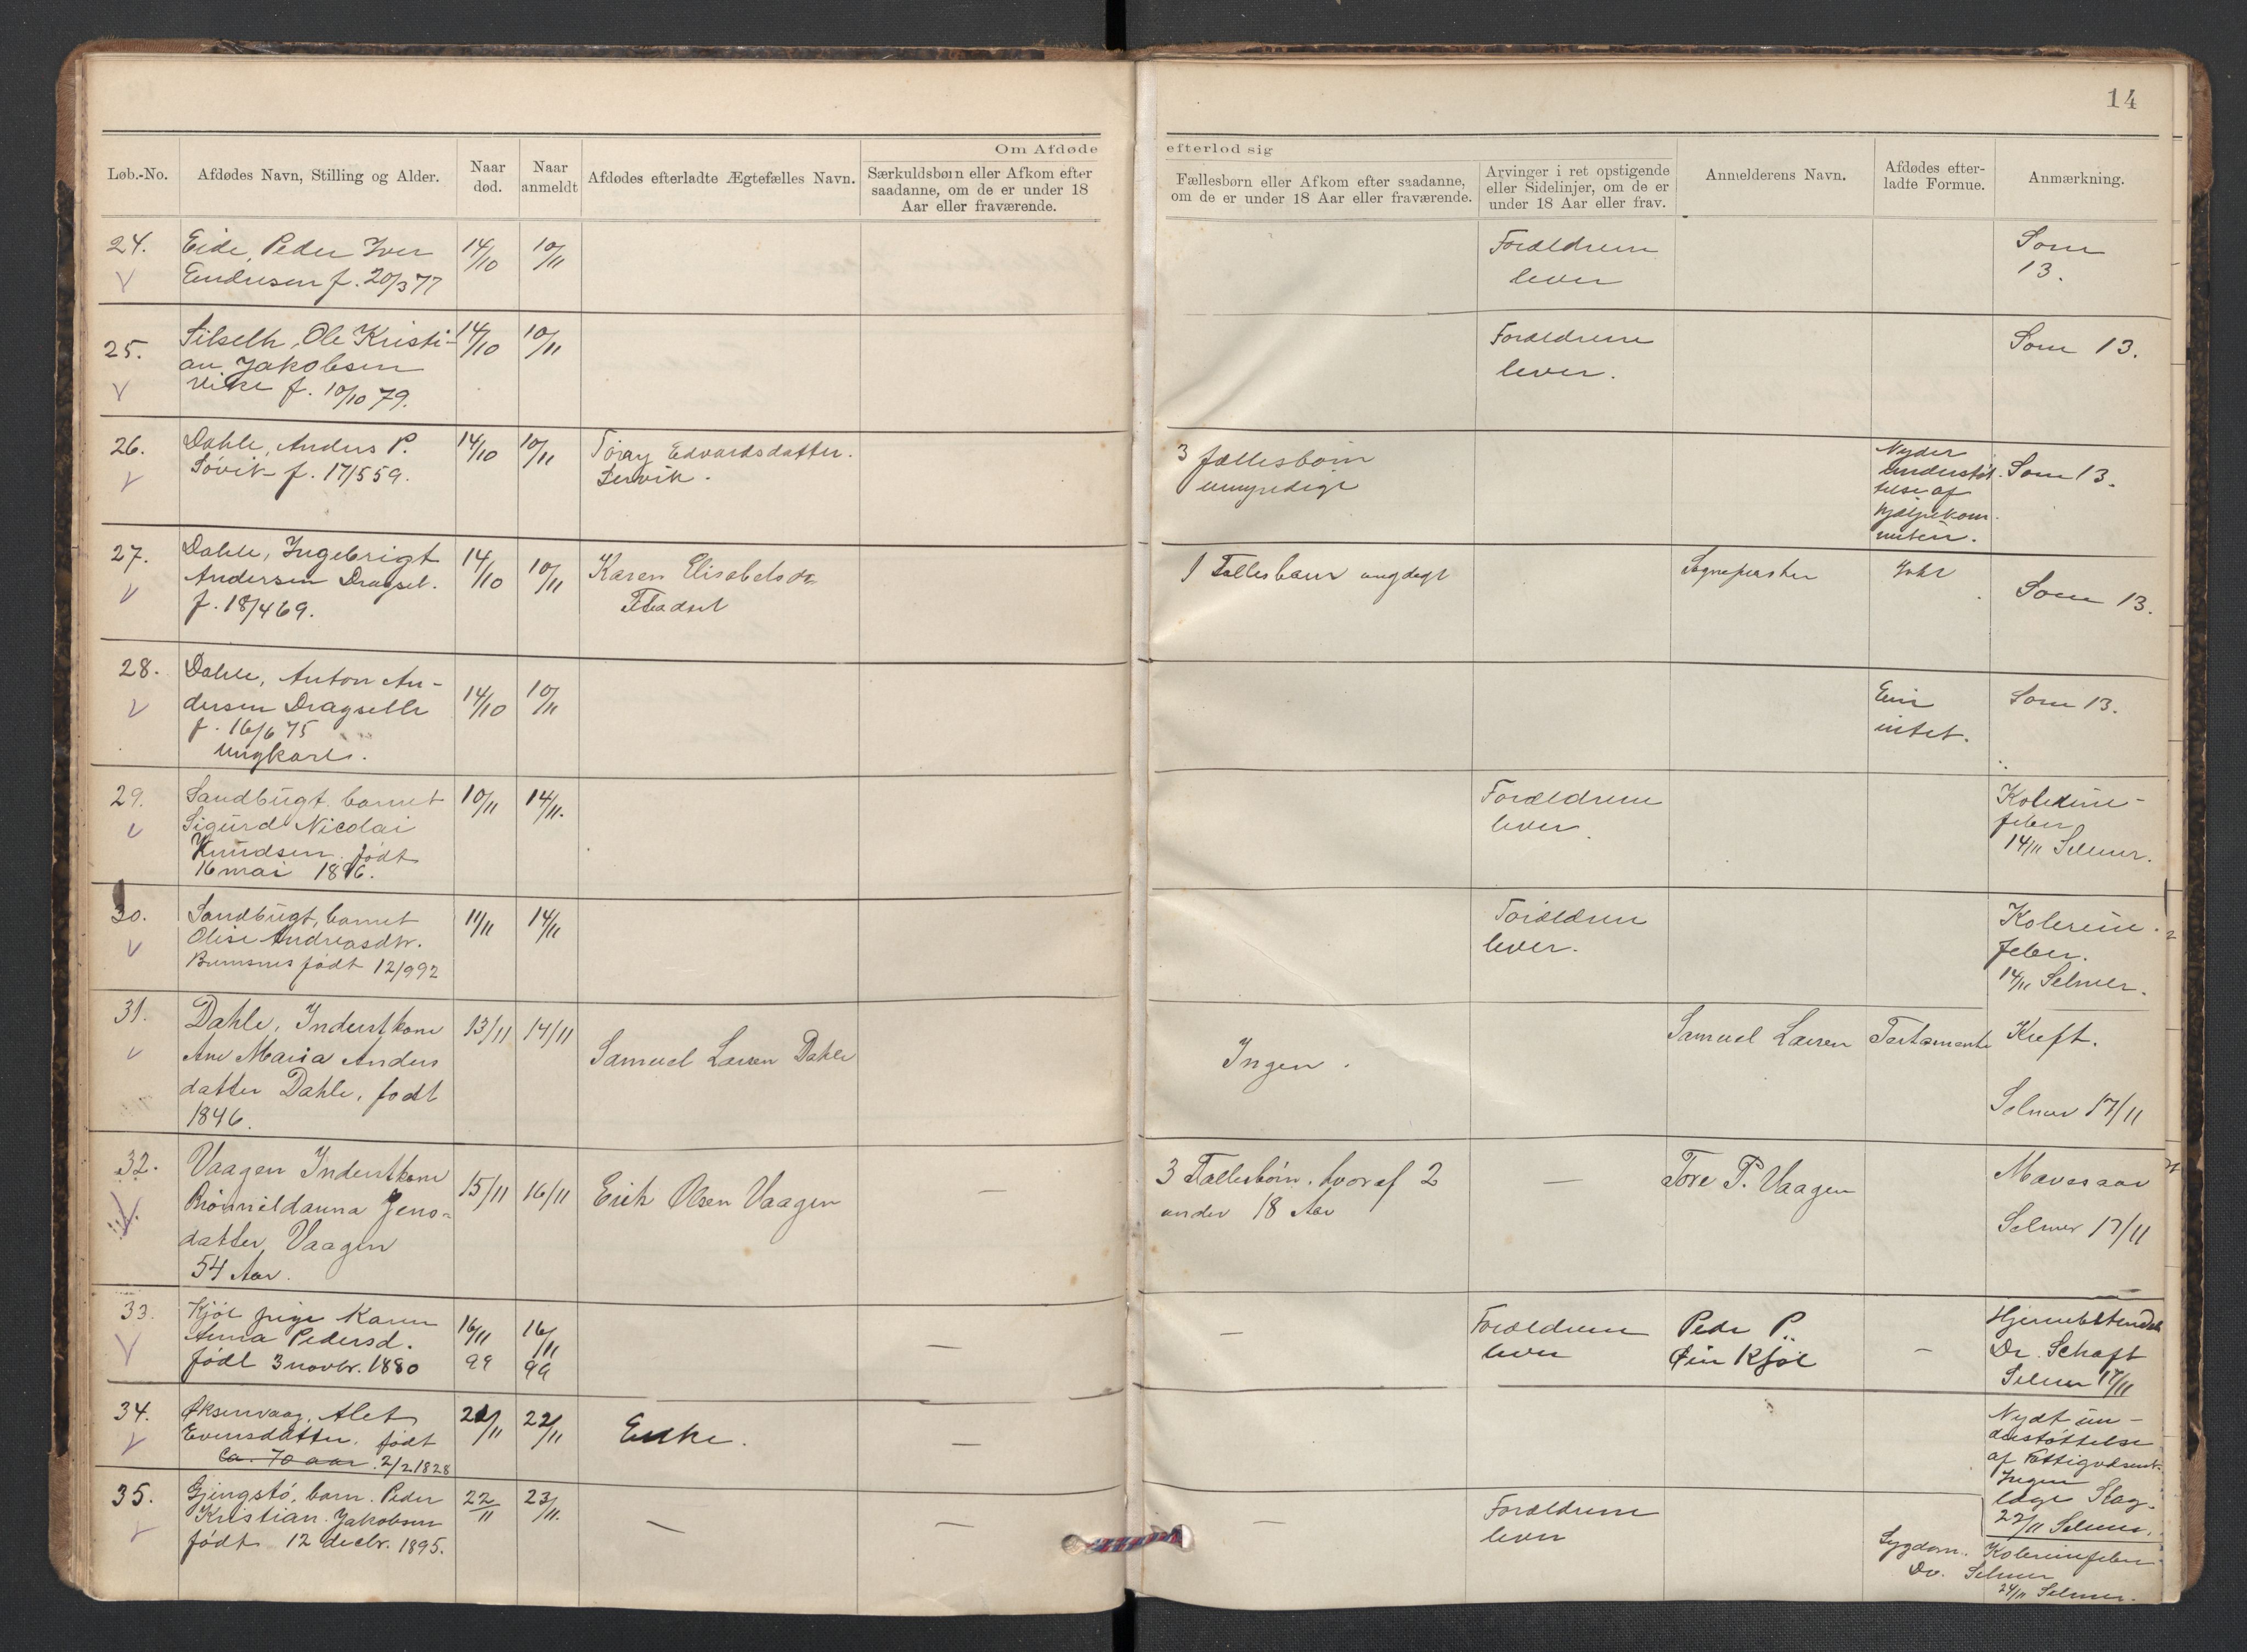 14
Om Afdøde
efterlod sig
Løb.-No.
Afdødes Navn, Stilling og Alder.
Naar
død.
Naar
anmeldt
Afdødes efterladte Ægtefælles Navn.
Særkuldsbørn eller Afkom efter
saadanne, om de er under 18
Aar eller fraværende.
Fællesbørn eller Afkom efter saadanne,
om de er under 18 Aar eller fraværende.
Arvinger i ret opstigende
eller Sidelinjer, om de er
under 18 Aar eller frav.
Anmelderens Navn.
Afdødes efter-
ladte Formue.
Anmærkning.
24.
Eide, Peder Iver
Endresen f. 20/3 77
14/10
10/11
Forældrene
lever
Som
13.
25.
Ole Kristi-
an Jakobsen
f. 10/10 79.
14/10
10/11
Forældrene
lever.
Som 13.
26.
Dahle, Anders P.
Søvik f. 17/5 59.
14/10
10/11
Edvardsdatter.
3 fællesbørn
umyndige
Nyder
understøt-
telse af
hjælpekom-
miteen.
Som 13.
27.
Dahle, Ingebrigt
Andersen Dragset.
f. 18/4 69.
14/10
10/11
Karen
1 Fællesbarn
Sognepresten
Som 13.
28.
Dahle, Anton An-
dersen Dragseth
f. 16/6 75
Ungkarl.
14/10
10/11
Eier
intet.
Som 13.
29.
Sandbugt, barnet
Sigurd Nicolai
Knudsen. født
16 mai 1896.
10/11
14/11.
Forældrene
lever.
Kolerine-
feber
14/11 Selmer.
30.
Sandbugt, barnet
Olise Andreasdtr.
født 12/9 92
11/11
14/11
Forældrene
lever.
Kolerine-
feber.
14/11 Selmer.
31.
Dahle, Inderstkone
Ane Maria Anders
datter Dahle, født
1846.
13/11
14/11
Samuel Larsen Dahle
Ingen.
Samuel Larsen
Testamente
Kræft.
Selmer 17/11
32.
Vaagen Inderstkone
Jens-
datter Vaagen
54 Aar.
15/11
16/11
Erik Olsen Vaagen
—
3 Fællesbørn, hvoraf 2
under 18 Aar
—
Tore P. Vaagen
Mavesaar
Selmer 17/11
33.
Kjøl pige Karen
Anna Pedersd.
født 3 novbr. 1880
16/11
99
16/11
99
—
—
Forældrene
lever
Peder P.
Kjøl
—
Dr. Schaft
Selmer 17/11
34.
Øksenvaag, Alet
Evensdatter. født
ca. 70 aar. 2/2 1828
21/11
22/11
Enke.
—
Nydt un-
derstøttelse
af Fattigvæsenet.
Ingen
læge Slag.
22/11 Selmer.
35.
Gjengstø, barn. Peder
Kristian Jakobsen
født 12 decbr. 1895.
22/11
23/11.
—
—
—
Forældrene
lever
Sygdom. Kolerinefeber
Dr. Selmer
24/11 Selmer.